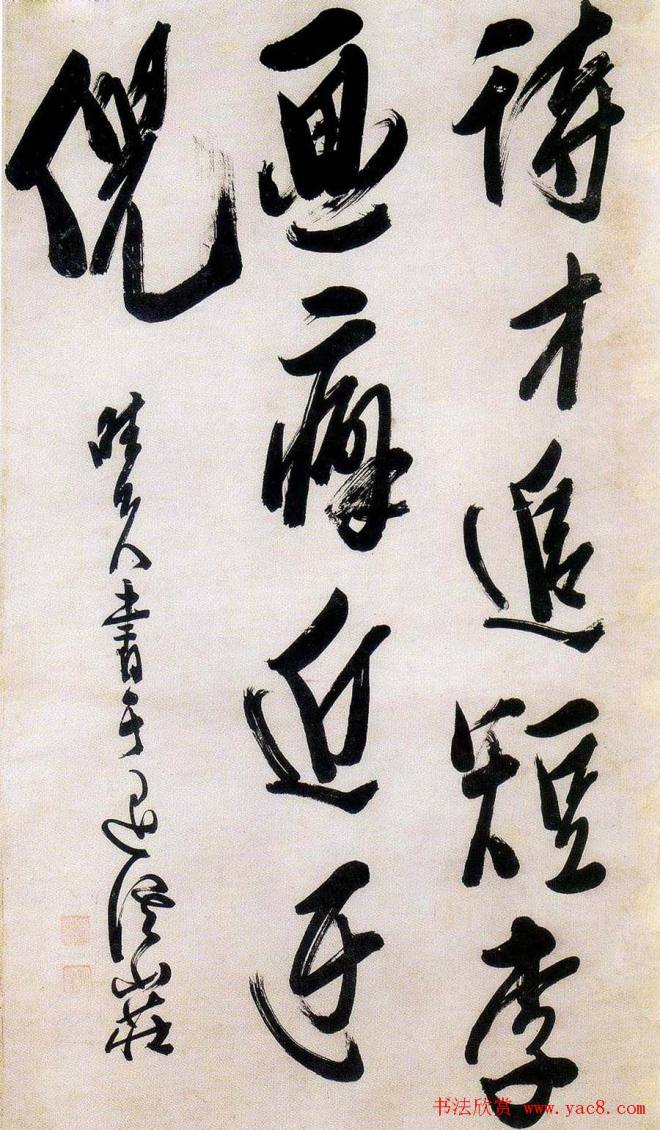 詩才追短李
画癖近迂
倪
老人書于山莊
书法欣赏 www.yac8.com